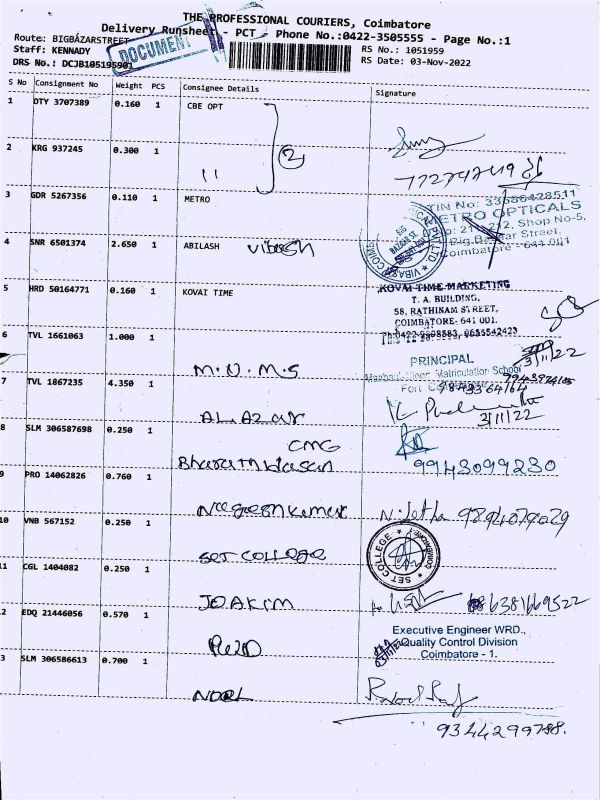 THE PROFESSIONAL COURIERS, Coimbatore
Delivery Runsheet - PCT - Phone No.:0422-3505555 - Page No.:1
Route: BIGBAZARSTREET
DOCUMENT
RS No.: 1051959
Staff: KENNADY
RS Date: 03-Nov-2022
DRS No.: DCJB105195901
S No Consignment No Weight PCS Consignee Details Signature
1 DTY 3707389 0.160 1 CBE OPT
2 KRG 937245 0.300 1 " 2
3 GDR 5267356 0.110 1 METRO
TIN No: 33586428511
METRO OPTICALS
Shop No-5,
Big Bazaar Street,
Coimbatore - 641 001
4 SNR 6501374 2.650 1 ABILASH Vibash
5 HRD 50164771 0.160 1 KOVAI TIME
KOVAI TIME MARKETING
T. A. BUILDING,
58, RATHINAM STREET,
COIMBATORE- 641 001.
6 TVL 1661063 1.000 1 M.N.M.S
3/11/22
PRINCIPAL
Matriculation School
7 TVL 1867235 4.350 1 AL.Azar
3/11/22
8 SLM 306587698 0.250 1 CMG
Bharathidasan
9943099230
9 PRO 14062826 0.760 1 Nageesh kumar
9894079029
10 VNB 567152 0.250 1 SET COLLEGE
SET COLLEGE
11 CGL 1404082 0.250 1 JOAKIM
6381669522
12 EDQ 21446056 0.570 1 PWD
Executive Engineer WRD.,
Quality Control Division
Coimbatore - 1.
13 SLM 306586613 0.700 1 NOEL
9344299788.